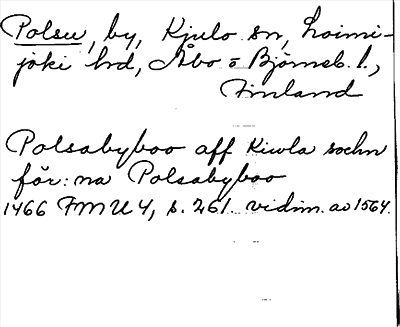 Polsu, by, Kjulo sn, Loimi-
joki hd, Åbo o Björneb. l.,
Finland
Polsabyboo aff Kiwla sochn
för: na Polsabyboo
1466 FMU 4, s. 261. vidim. av 1564.